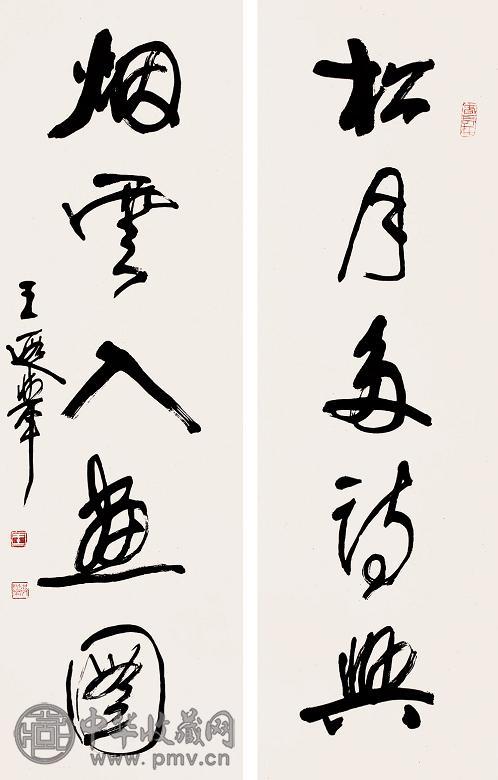 松月多詩興
烟雲入畫圖
王遐舉
中华收藏网
www.pmv.cn